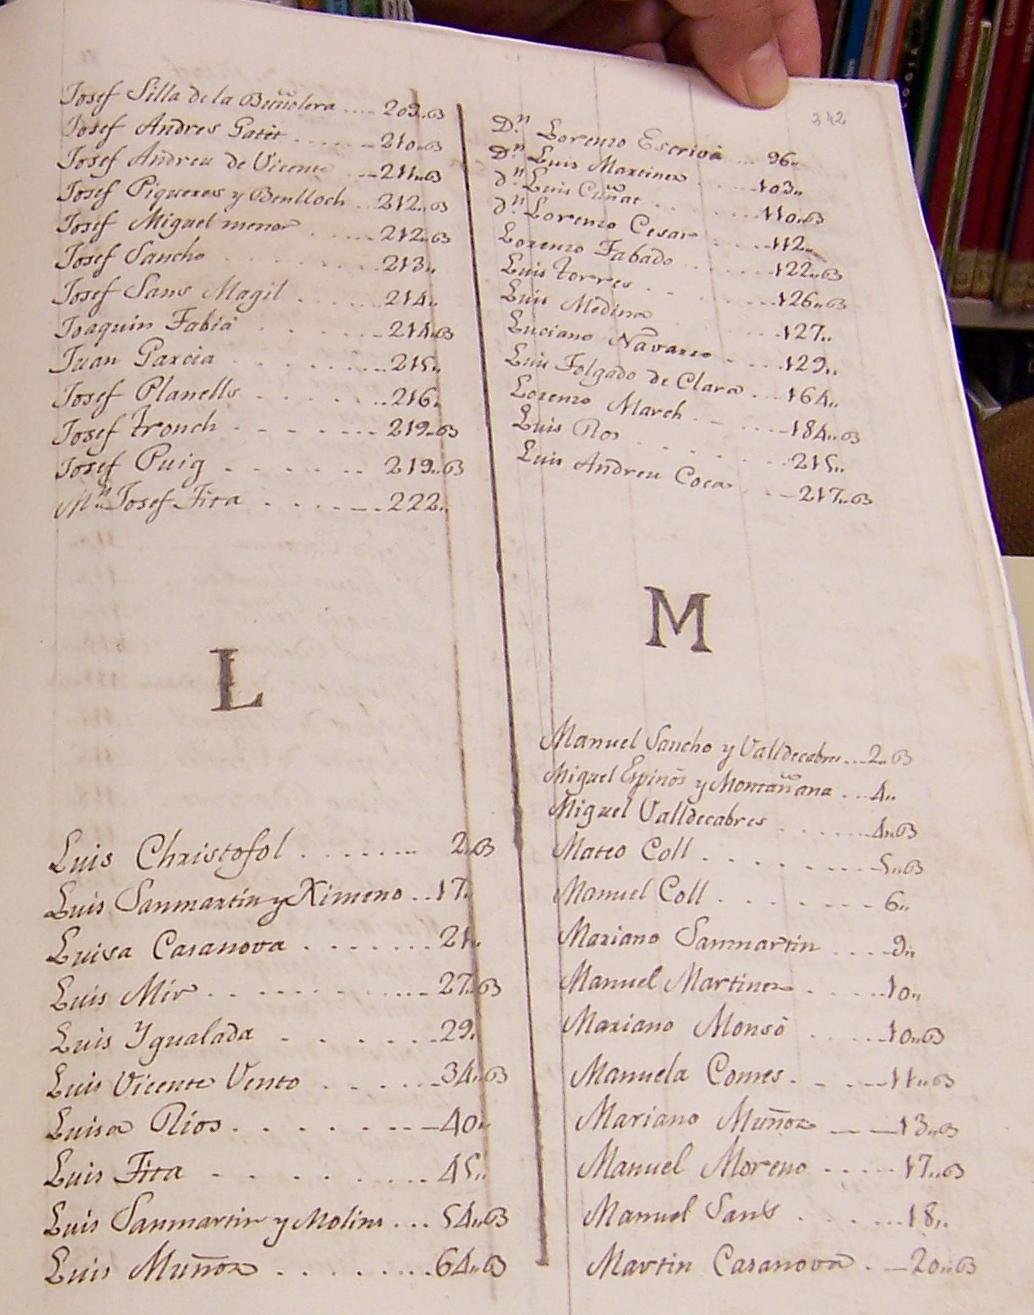 Josef Silla de la Buñolera .... 209..63
Josef Andres Gatét ...... 210..63
Josef Andreu de Vicente .. 211..63
Josef Piqueres y Benlloch .. 212..63
Josef Miguel menor ..... 212..63
Josef Sancho ........ 213..
Josef Sans Magil ...... 214..
Joaquin Fabiá ....... 214..63
Juan Garcia ........ 215..
Josef Planells ....... 216..
Josef tronch ....... 219..63
Josef Puig ....... 219..63
Mn. Josef Fita ...... 222..
L
Luis Christofol ....... 2..63
Luis Sanmartin y Ximeno .. 17..
Luisa Casanova ....... 21..
Luis Mir .......... 27..63
Luis Ygualada ....... 29..
Luis Vicente Vento ...... 34..63
Luisa Rios ........ 40..
Luis Fita ........ 45..
Luis Sanmartin y Molins ... 54..63
Luis Muñoz ........ 64..63
342
D.n Lorenzo Escrivá ... 96..
D.n Luis Martinez ..... 103..
d.n Luis Cuñat ....... 110..63
d.n Lorenzo Cesar ..... 112..
Lorenzo Fabado ....... 122..63
Luis torres ....... 126..63
Luis Medina ...... 127..
Luciano Navarro ..... 129..
Luis Folgado de Clara ... 164..
Lorenzo March ...... 184..63
Luis Ros ........ 215..
Luis Andreu Coca ... 217..63
M
Manuel Sancho y Valldecabres ... 2..63
Miguel Espinós y Montañana ... 4..
Miguel Valldecabres ....... 4..63
Mateo Coll ......... 5..63
Manuel Coll ........ 6..
Mariano Sanmartin .... 9..
Manuel Martinez ...... 10..
Mariano Monsó ..... 10..63
Manuela Comes ..... 11..63
Mariano Muñoz .... 13..63
Manuel Moreno ..... 17..63
Manuel Sans ...... 18..
Martin Casanova .. 20..63